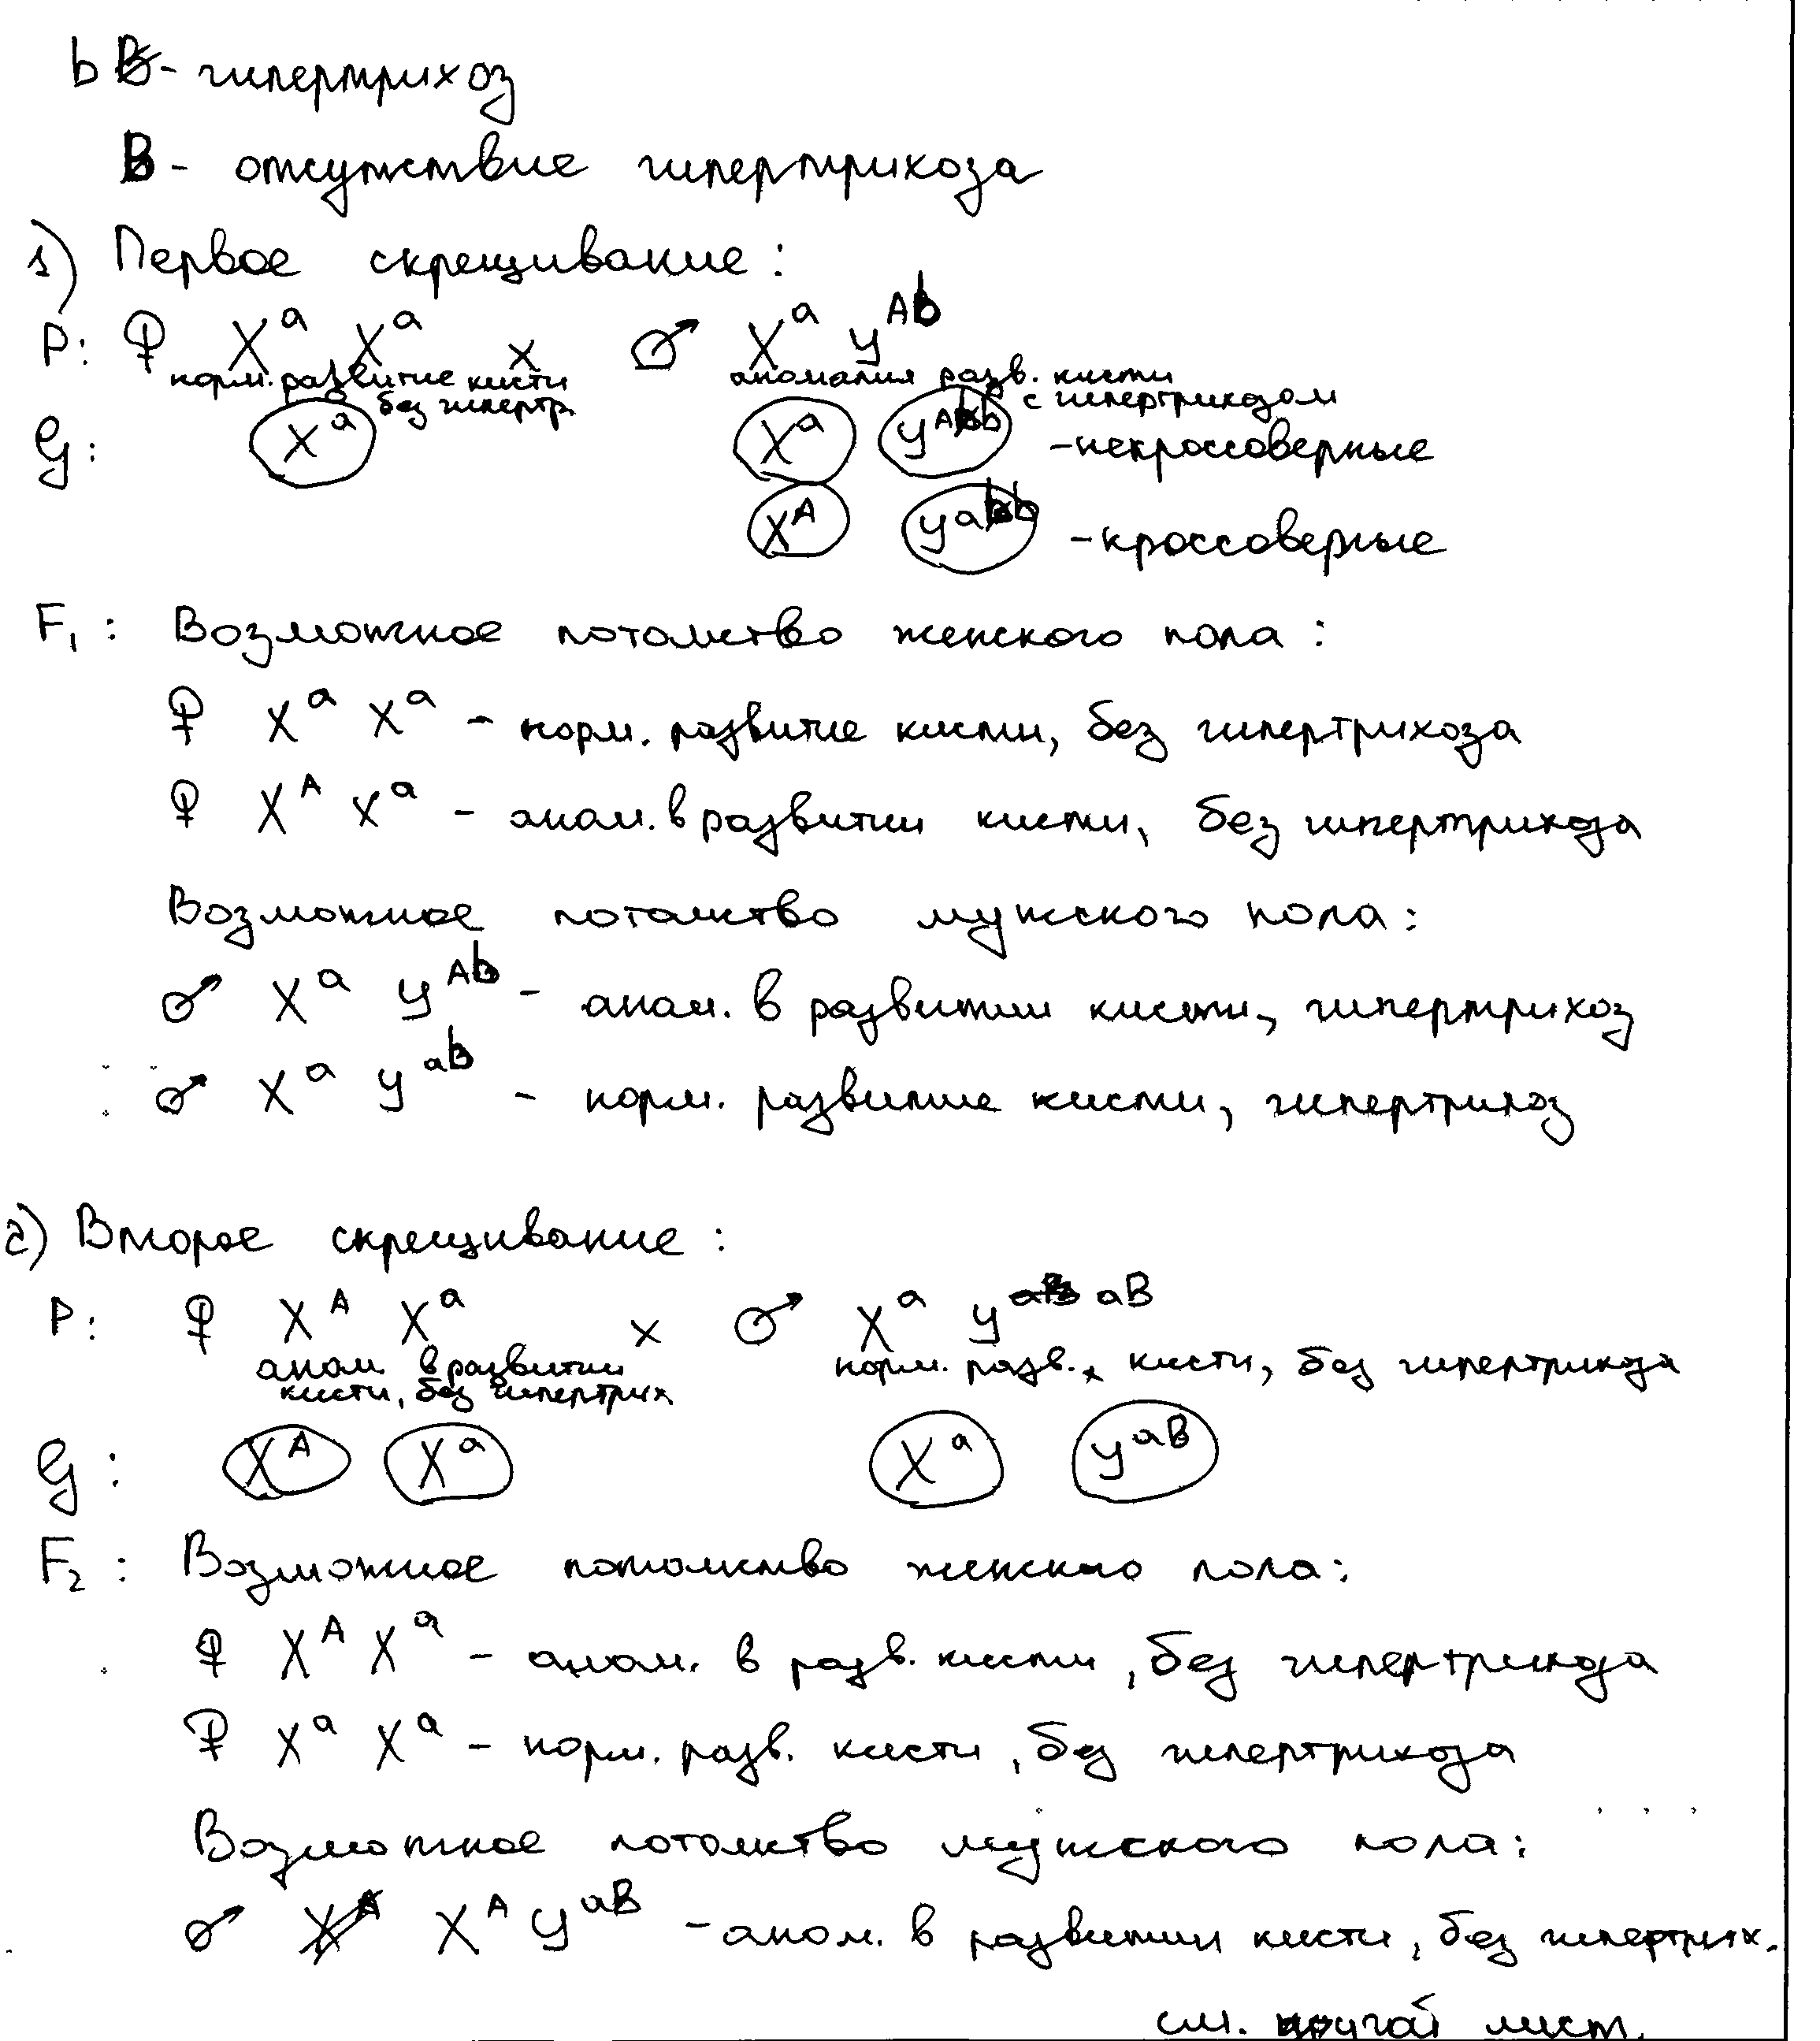 b - гипертрихоз
B - отсутствие гипертрихоза
1) Первое скрещивание:
P: ♀ Xᵃ Xᵃ x ♂ Xᵃ Yᴬᵇ
норм. развитие кисти без гипертр. аномалия разв. кисти с гипертрихозом
G: Xᵃ Xᵃ Yᴬᵇ - некроссоверные
Xᴬ Yᵃᵇ - кроссоверные
F₁: Возможное потомство женского пола:
♀ Xᵃ Xᵃ - норм. развитие кисти, без гипертрихоза
♀ Xᴬ Xᵃ - аном. в развитии кисти, без гипертрихоза
Возможное потомство мужского пола:
♂ Xᵃ Yᴬᵇ - аном. в развитии кисти, гипертрихоз
♂ Xᵃ Yᵃᵇ - норм. развитие кисти, гипертрихоз
2) Второе скрещивание:
P: ♀ Xᴬ Xᵃ x ♂ Xᵃ Yᵃᴮ
аном. в развитии кисти, без гипертрих норм. разв. кисти, без гипертрихоза
G: Xᴬ Xᵃ Xᵃ Yᵃᴮ
F₂: Возможное потомство женского пола:
♀ Xᴬ Xᵃ - аном. в разв. кисти, без гипертрихоза
♀ Xᵃ Xᵃ - норм. разв. кисти, без гипертрихоза
Возможное потомство мужского пола:
♂ Xᴬ Yᵃᴮ - аном. в развитии кисти, без гипертрих.
см. другой лист.